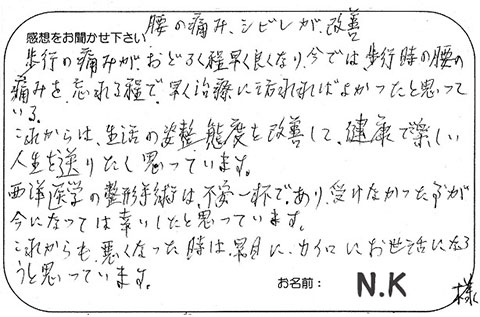 感想をお聞かせ下さい 腰の痛み、シビレが、改善
歩行の痛みが、おどろく程早く良くなり、今では歩行時の腰の
痛みを、忘れる程で、早く治療に訪れればよかったと思って
いる。
これからは、生活の姿整、態度を改善して、健康で楽しい
人生を送りたく思っています。
西洋医学の整形手術は、不安一杯で、あり、受けなかった事が
今になっては幸いしたと思っています。
これからも、悪くなった時は、早目に、カイロにお世話になろ
うと思っています。
お名前： N.K 様